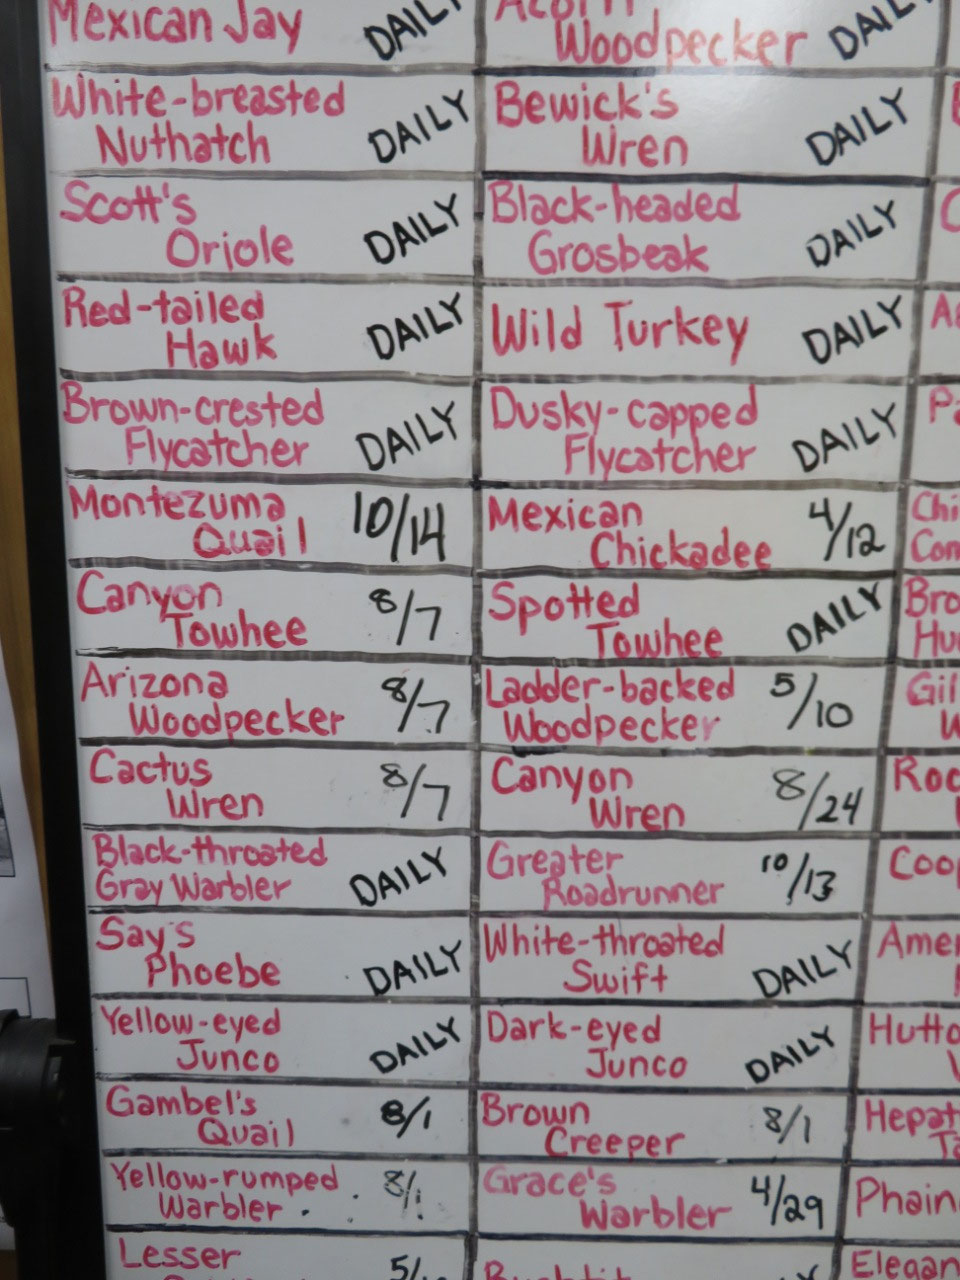 Mexican Jay DAILY
Acorn
Woodpecker DAILY
White-breasted
Nuthatch DAILY
Bewick's
Wren DAILY
Scott's
Oriole DAILY
Black-headed
Grosbeak DAILY
Red-tailed
Hawk DAILY
Wild Turkey DAILY
Brown-crested
Flycatcher DAILY
Dusky-capped
Flycatcher DAILY
Montezuma
Quail 10/14
Mexican
Chickadee 4/12
Chi
Con
Canyon
Towhee 8/7
Spotted
Towhee DAILY
Bro
Hu
Arizona
Woodpecker 8/7
Ladder-backed
Woodpecker 5/10
Gil
Cactus
Wren 8/7
Canyon
Wren 8/24
Roc
Black-throated
Gray Warbler DAILY
Greater
Roadrunner 10/13
Coop
Say's
Phoebe DAILY
White-throated
Swift DAILY
Amer
Yellow-eyed
Junco DAILY
Dark-eyed
Junco DAILY
Hutto
Gambel's
Quail 8/1
Brown
Creeper 8/1
Hepat
Ta
Yellow-rumped
Warbler 8/1
Grace's
Warbler 4/29
Phain
Lesser
5/
Elegan